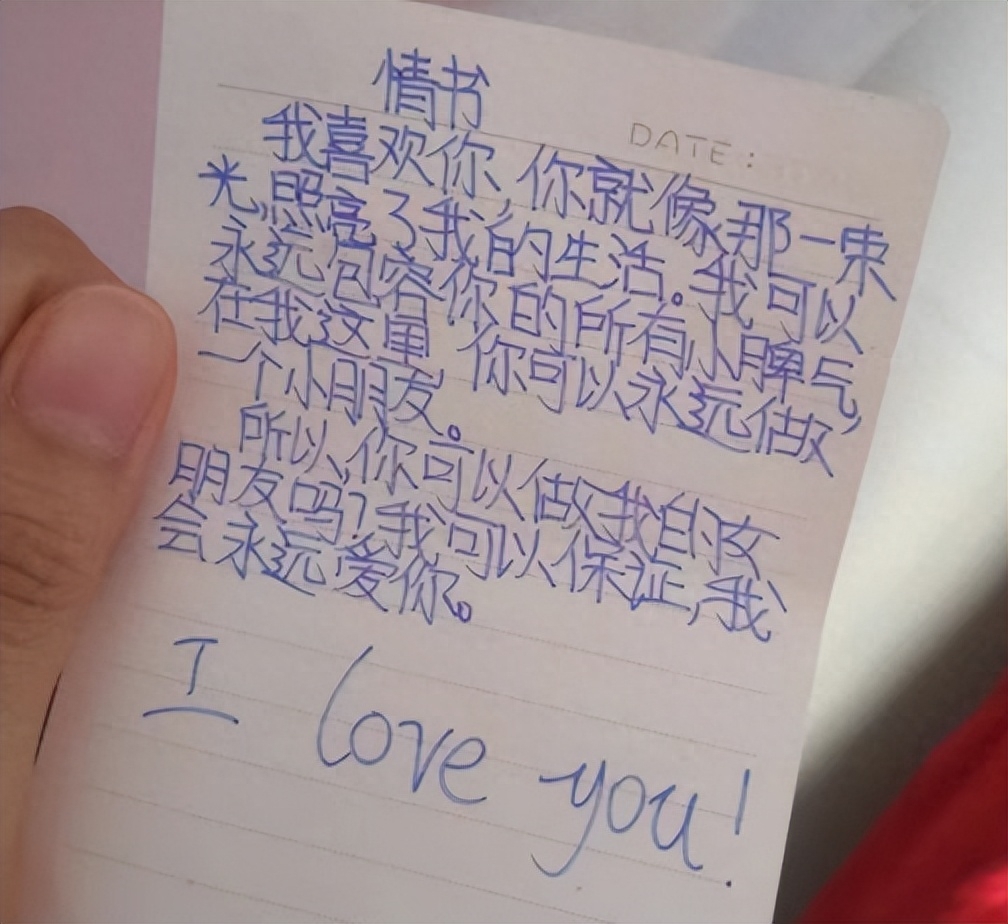 情书
DATE:
我喜欢你,你就像那一束
光,照亮了我的生活。我可以
永远包容你的所有小脾气,
在我这里,你可以永远做
一个小朋友。
所以,你可以做我的女
朋友吗?我可以保证,我
会永远爱你。
I love you!